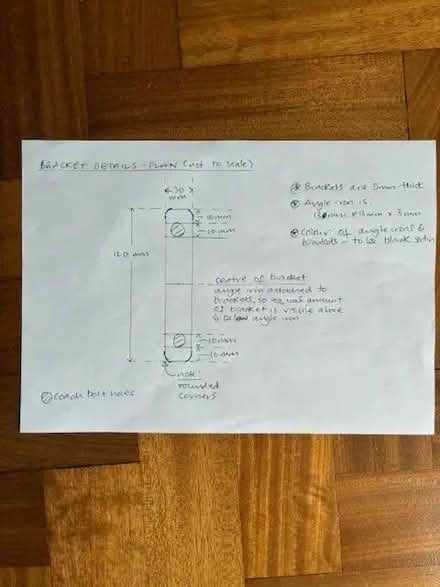 BRACKET DETAILS - PLAN (not to scale)
30
mm
10mm
10mm
120 mm
centre of bracket
angle iron attached to
brackets, so equal amount
of bracket is visible above
& below angle iron
10mm
10mm
note:
rounded
corners
Coach bolt holes
Brackets are 5mm thick
Angle iron is
mm x 3mm
Colour of angle irons &
brackets - to be black satin